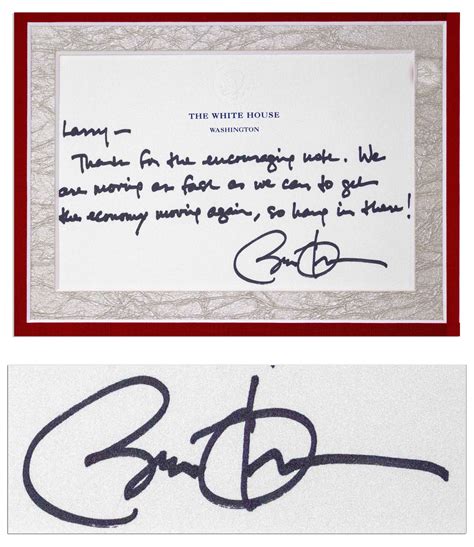 THE WHITE HOUSE
WASHINGTON
Larry—
Thanks for the encouraging note. We
are moving as fast as we can to get
the economy moving again, so hang in there!